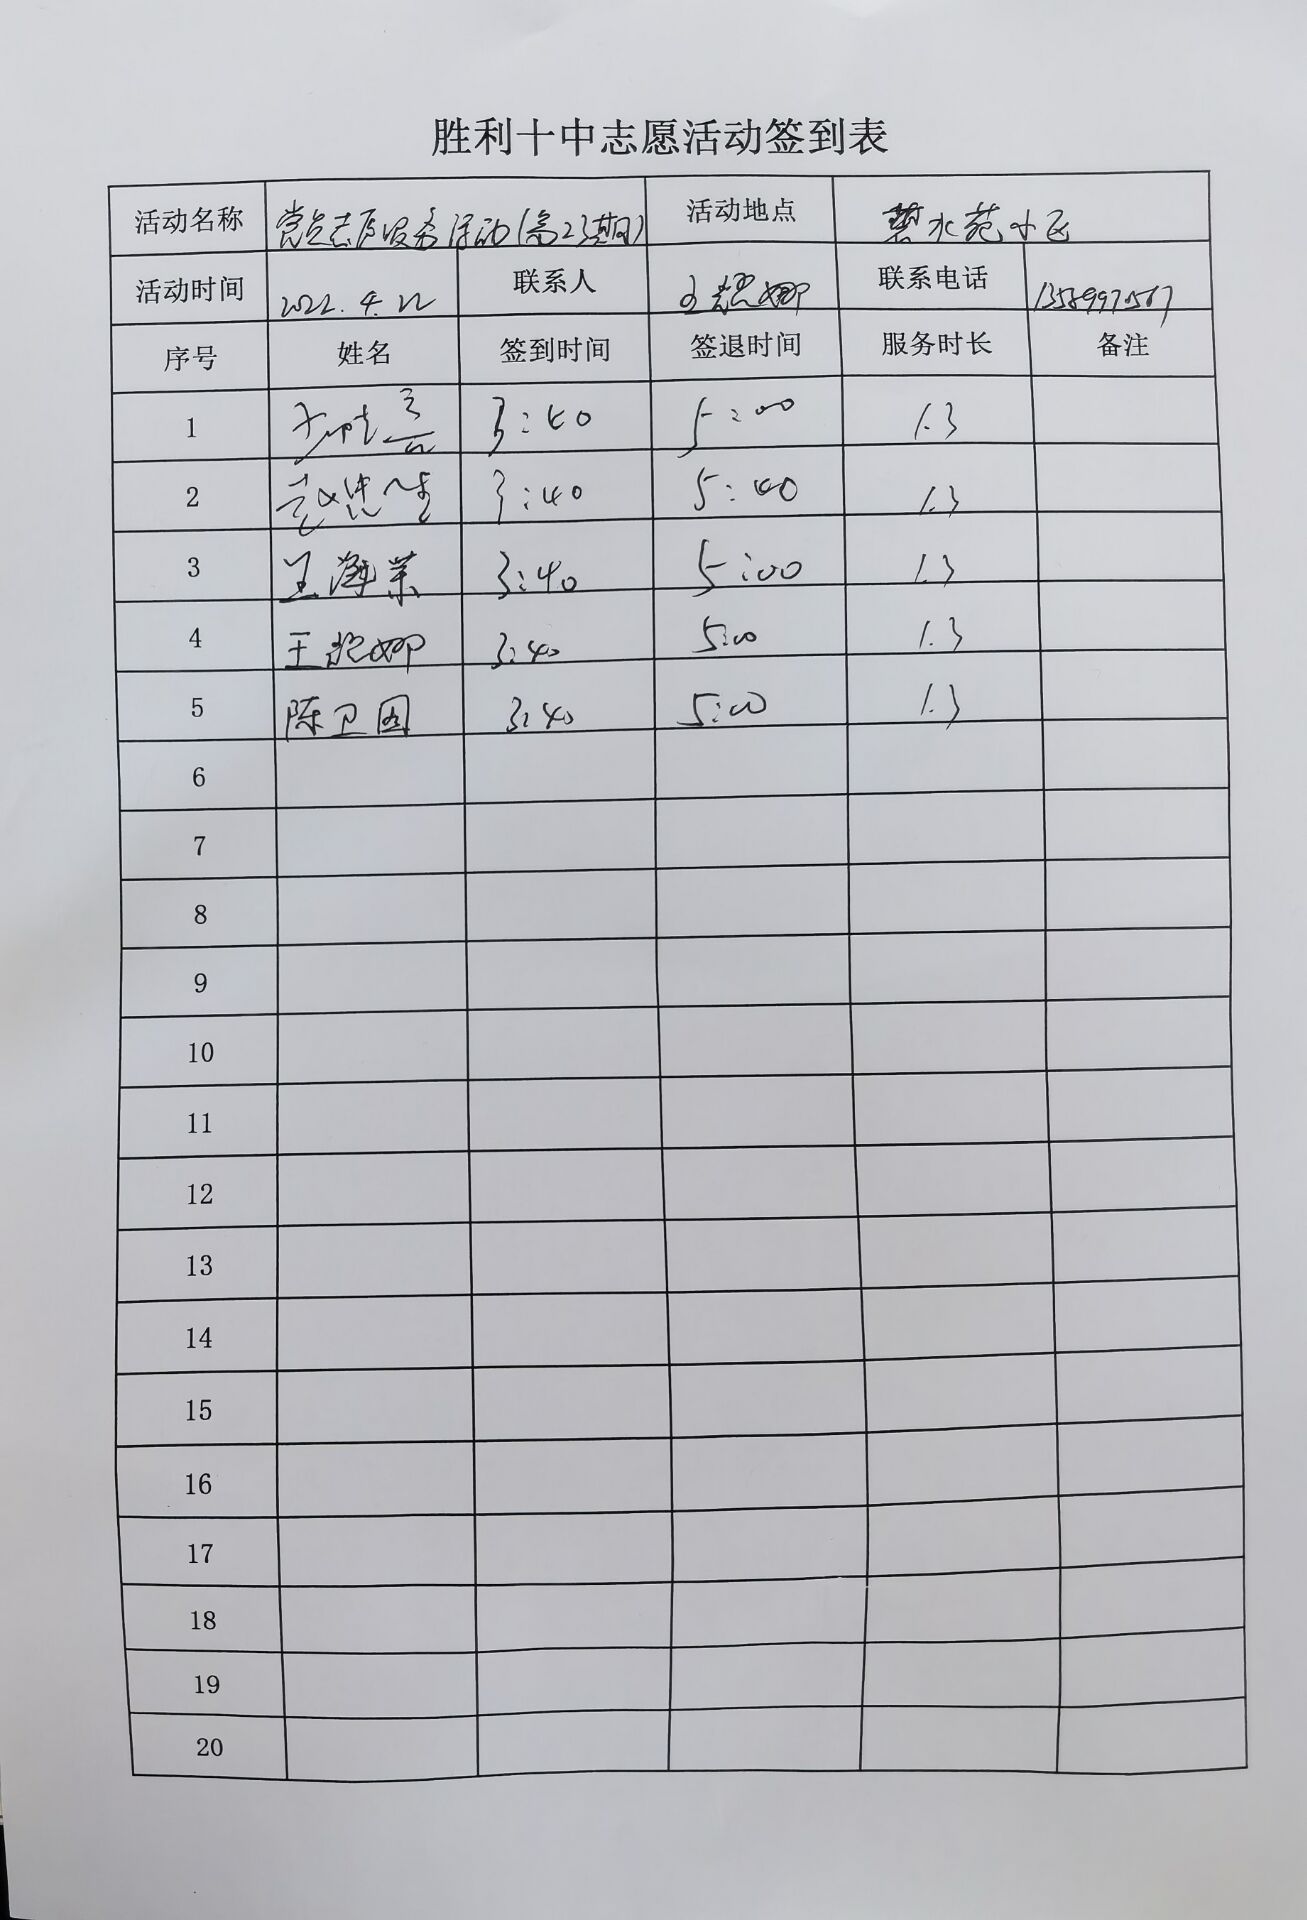 胜利十中志愿活动签到表
活动名称 党员志愿服务活动(高23期) 活动地点 碧水苑小区
活动时间 2022.4.22 联系人 王艳娜 联系电话
序号 姓名 签到时间 签退时间 服务时长 备注
1 3:40 5:00 1.3
2 3:40 5:40 1.3
3 王海荣 3:40 5:00 1.3
4 王艳娜 3:40 5:00 1.3
5 陈卫国 3:40 5:00 1.3
6
7
8
9
10
11
12
13
14
15
16
17
18
19
20